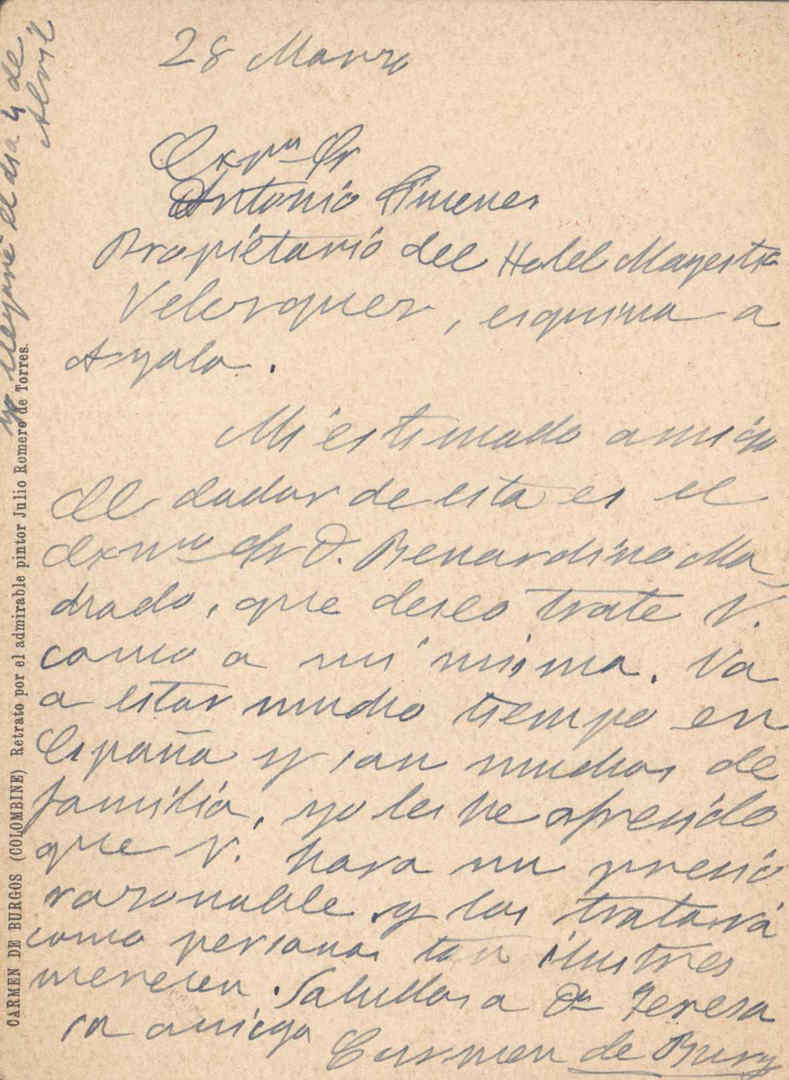 28 Marzo
Exmo Sr
Antonio Gimenes
Propietario del Hotel Magestic
Velazquez, esquina a
Ayala.
Mi estimado amigo
El dador de esta es el
Exmo Sr D. Benardino Ma
drado, que deseo trate V.
como a mi misma. Va
a estar mucho tiempo en
España y son muchos de
familia, yo les he ofrecido
que V. hara un precio
razonable y los tratará
como personas tan ilustres
merecen. Saludos a Da Teresa
su amiga
Carmen de Burg
yo llegaré el dia 4 de
Abril
CARMEN DE BURGOS (COLOMBINE) Retrato por el admirable pintor Julio Romero de Torres.